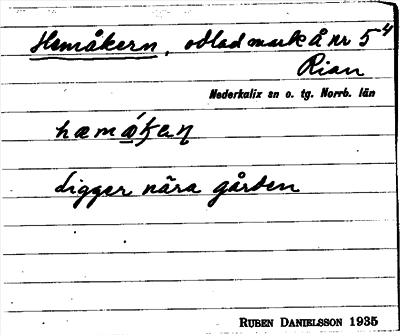 Hemåkern, odlad mark Å nr 5⁴
Rian
Nederkalix sn o. tg. Norrb. län
hæmákan
ligger nära gården
RUBEN DANIELSSON 1935